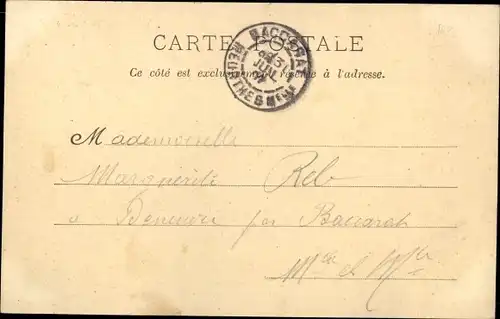 CARTE POSTALE
Ce côté est exclusivement réservé à l'adresse.
BACCARAT
MEURTHE & Mlle
JUIL
Mademoiselle
Marguerite Reb
à Deneuvre par Baccarat
Mthe et Mlle